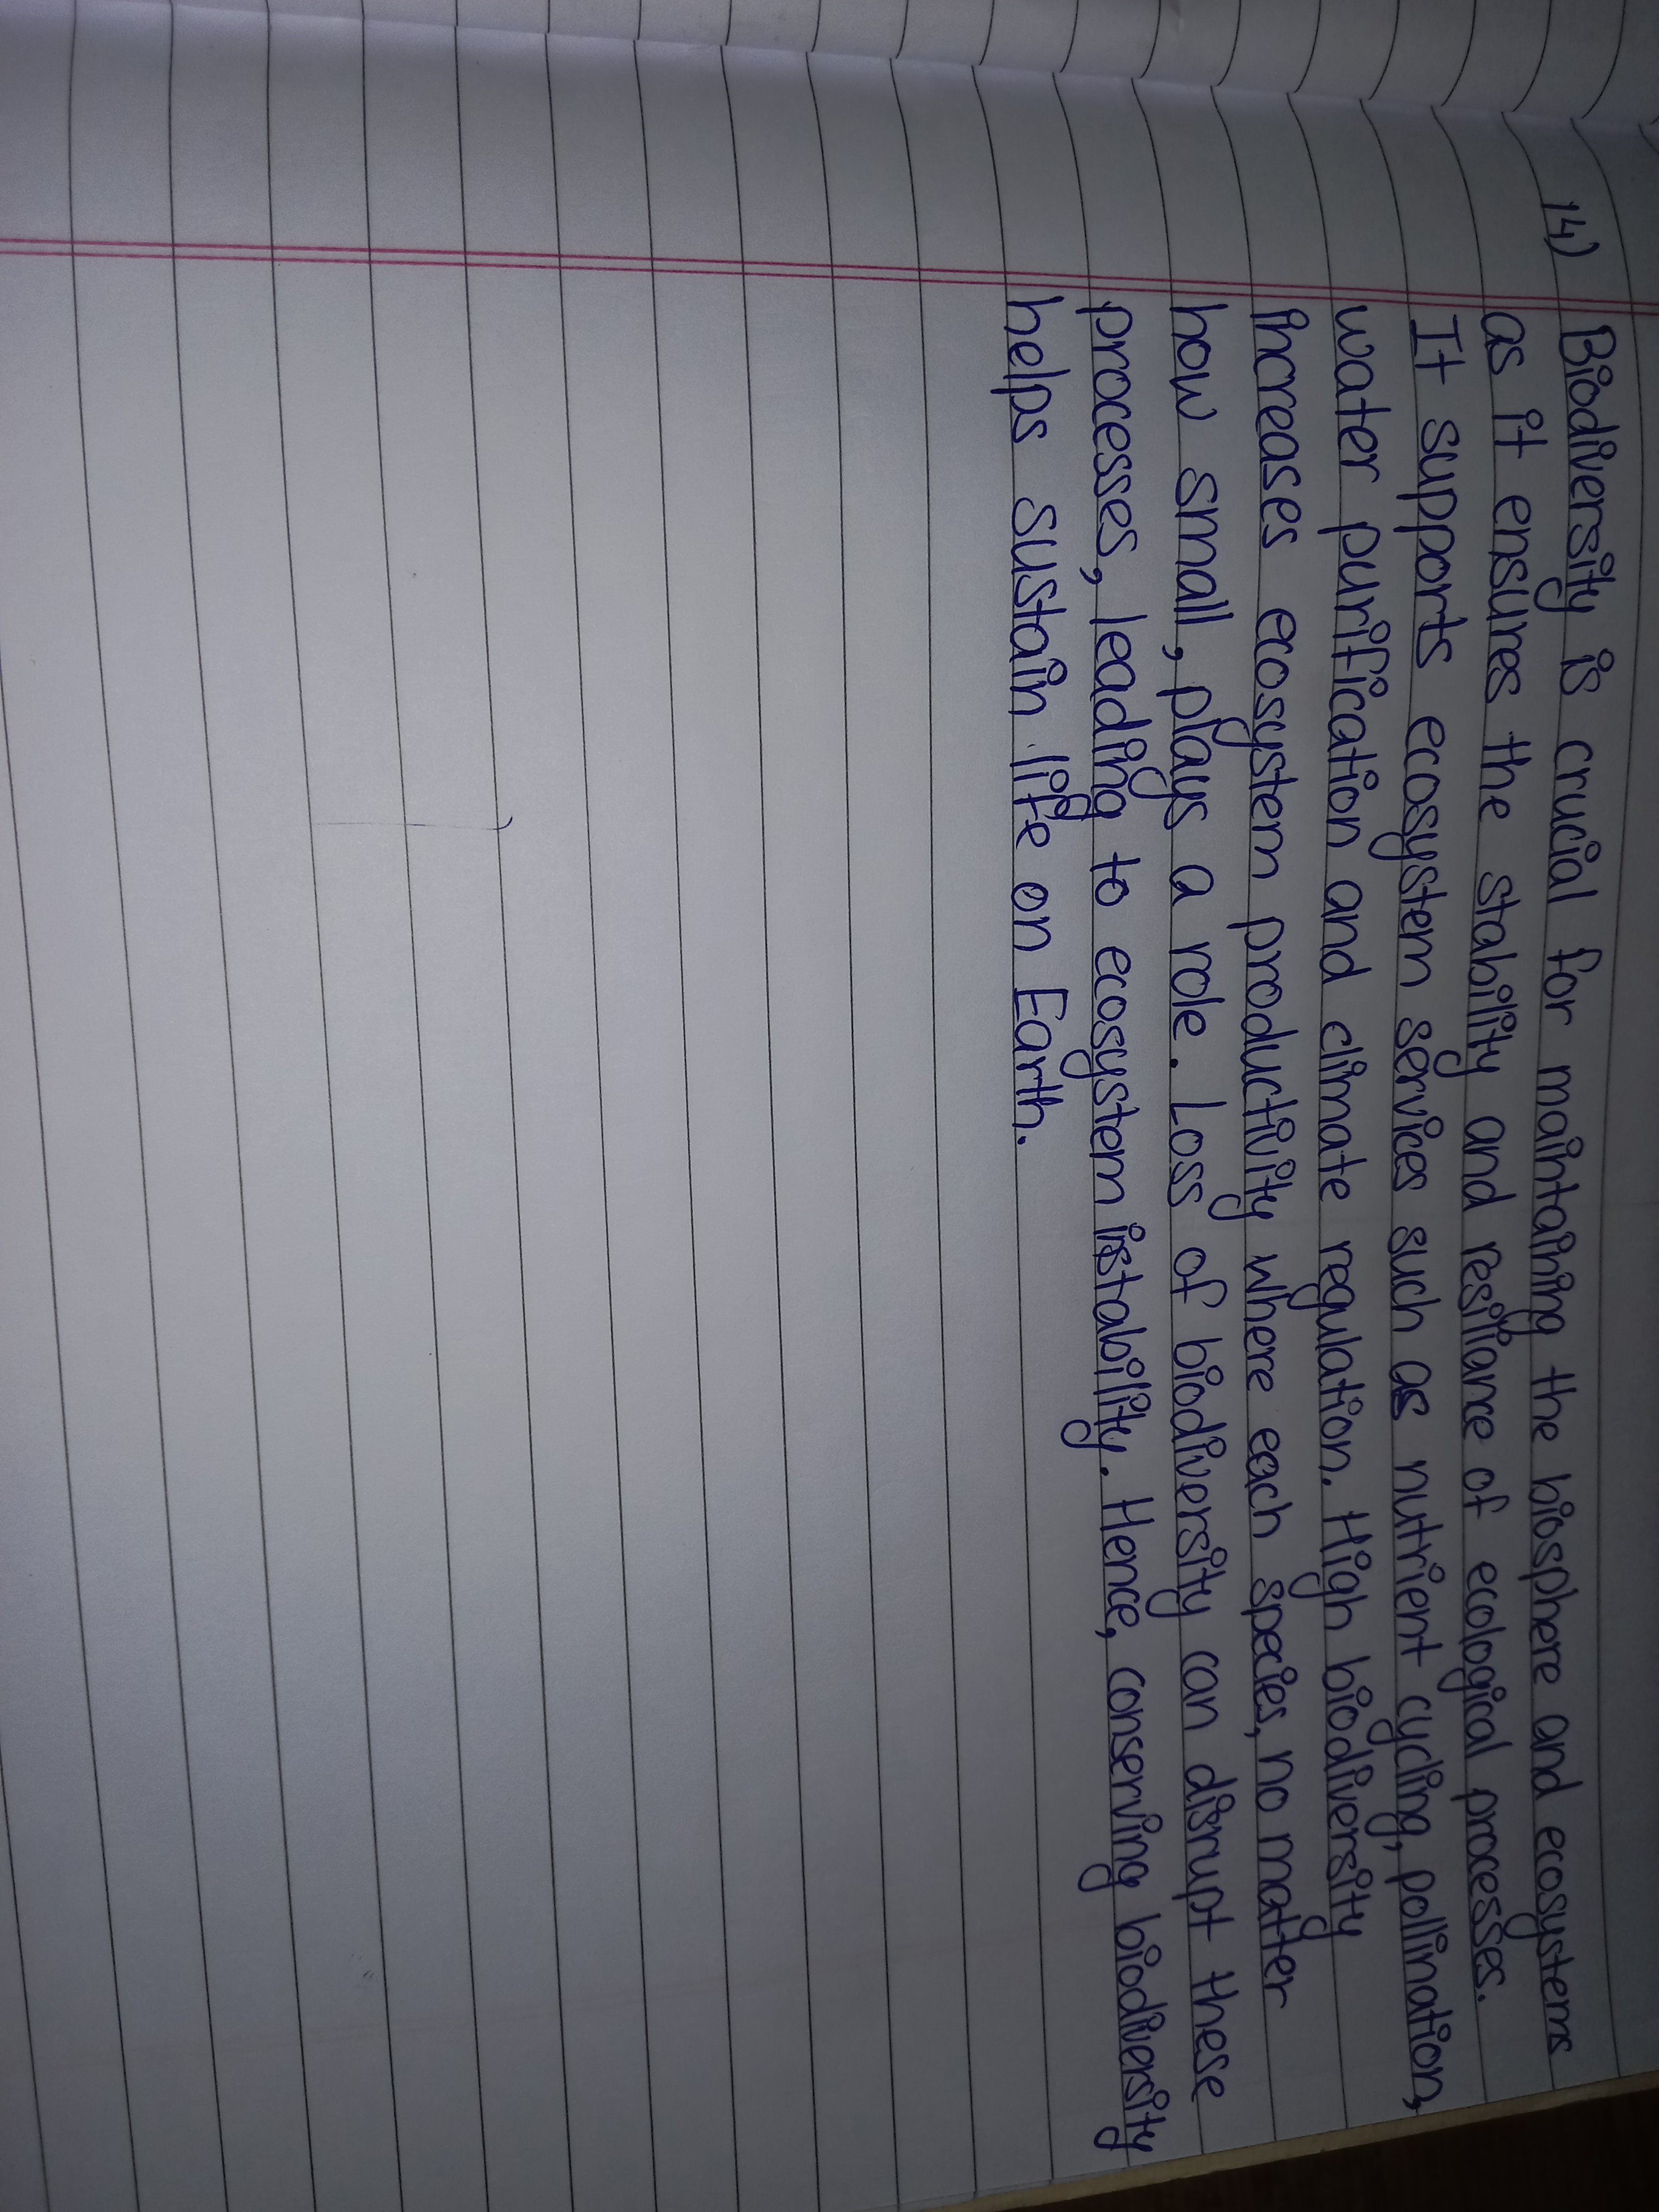 14) Biodiversity is crucial for maintaining the biosphere and ecosystems
as it ensures the stability and resiliance of ecological processes.
It supports ecosystem services such as nutrient cycling, pollination,
water purification and climate regulation. High biodiversity
increases ecosystem productivity where each species, no matter
how small, plays a role. Loss of biodiversity can disrupt these
processes, leading to ecosystem instability. Hence, conserving biodiversity
helps sustain life on Earth.